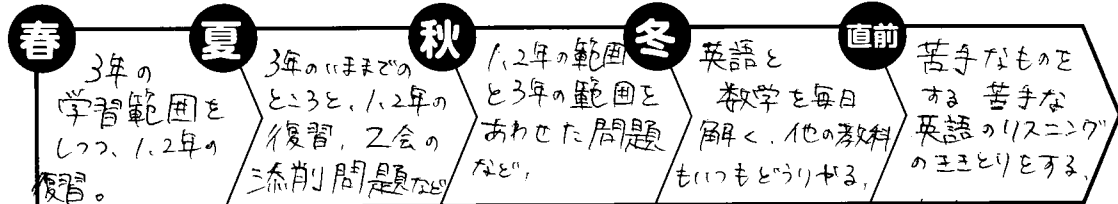 春
3年の
学習範囲を
しつつ、1、2年の
復習。
夏
3年のいままでの
ところと、1、2年の
復習、Z会の
添削問題など
秋
1、2年の範囲
と3年の範囲を
あわせた問題
など、
冬
英語と
数学を毎日
解く、他の教科
もいつもどうりやる、
直前
苦手なものを
する 苦手な
英語のリスニング
のききとりをする、